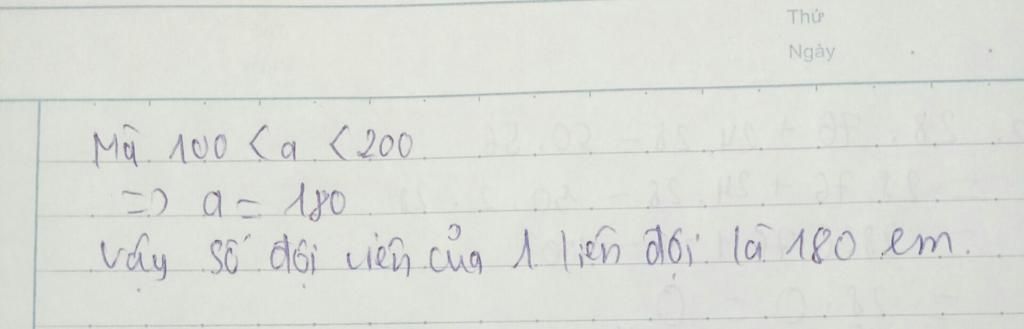 Thứ
Ngày
Mà 100 < a < 200
=> a = 180
Vậy số đội viên của 1 liên đội là 180 em.